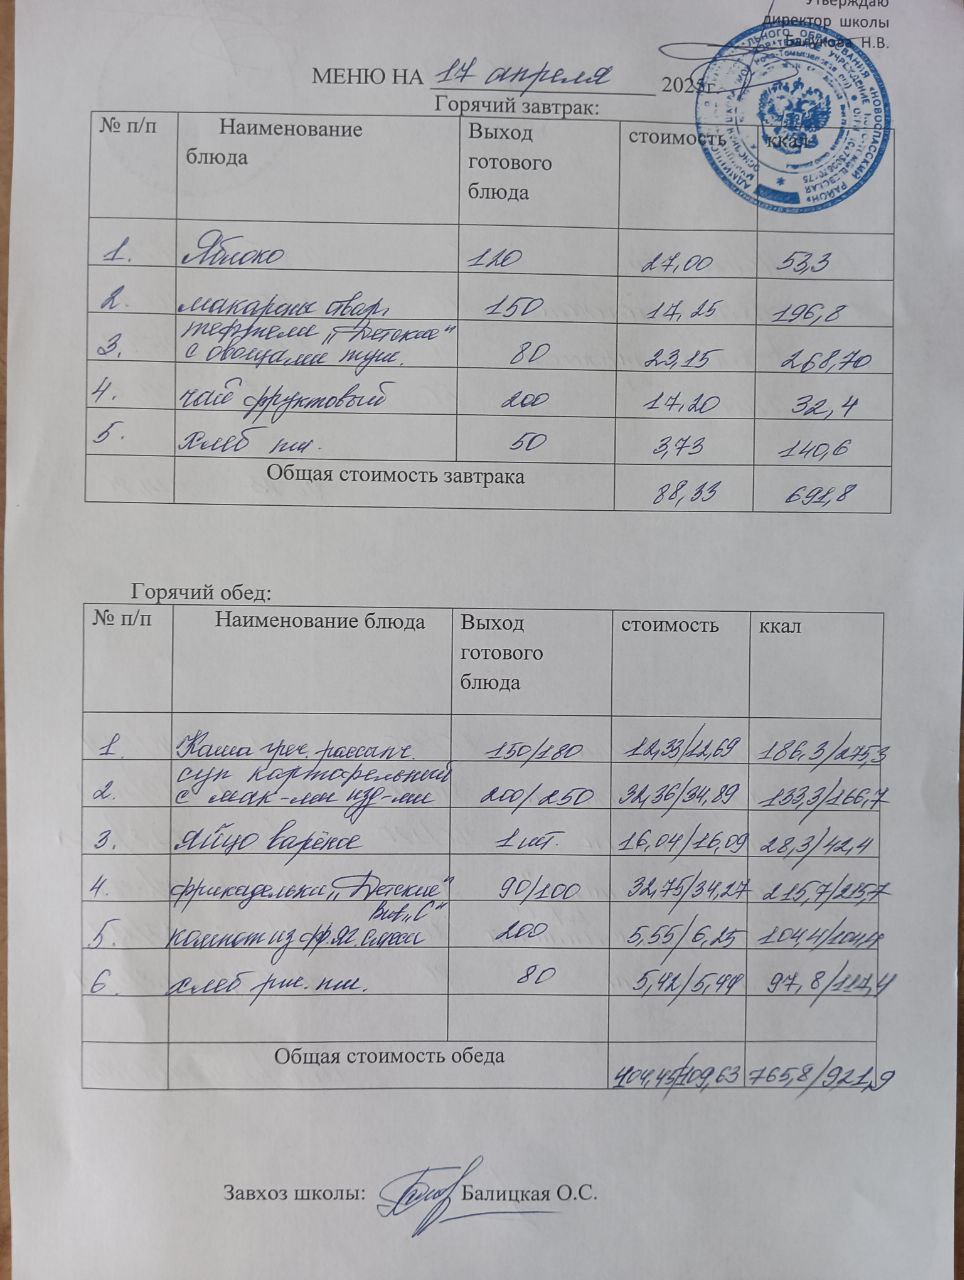 Утверждаю
директор школы
Балукова Н.В.
МЕНЮ НА 17 апреля 2025г.
Горячий завтрак:
№ п/п Наименование блюда Выход готового блюда стоимость ккал
1. Яблоко 120 27,00 53,3
2. макароны отвар. 150 17,25 196,8
3. тефтели „Детские“
с овощами туш. 80 23,15 268,70
4. чай фруктовый 200 17,20 32,4
5. хлеб пш. 50 3,73 140,6
Общая стоимость завтрака 88,33 691,8
Горячий обед:
№ п/п Наименование блюда Выход готового блюда стоимость ккал
1. Каша греч. рассыпч. 150/180 12,33/12,69 186,3/275,3
2. суп картофельный
с мак-ми изд-ми 200/250 32,36/34,89 133,3/166,7
3. яйцо варёное 1 шт. 16,04/16,09 28,3/42,4
4. фрикадельки „Детские“ 90/100 32,75/34,27 215,7/215,7
Вит „С“
5. компот из фр.яг. смеси 200 5,55/6,25 104,4/104,4
6. хлеб рж. пш. 80 5,42/5,44 97,8/117,4
Общая стоимость обеда 104,45/109,63 765,8/921,9
Завхоз школы: Балицкая О.С.